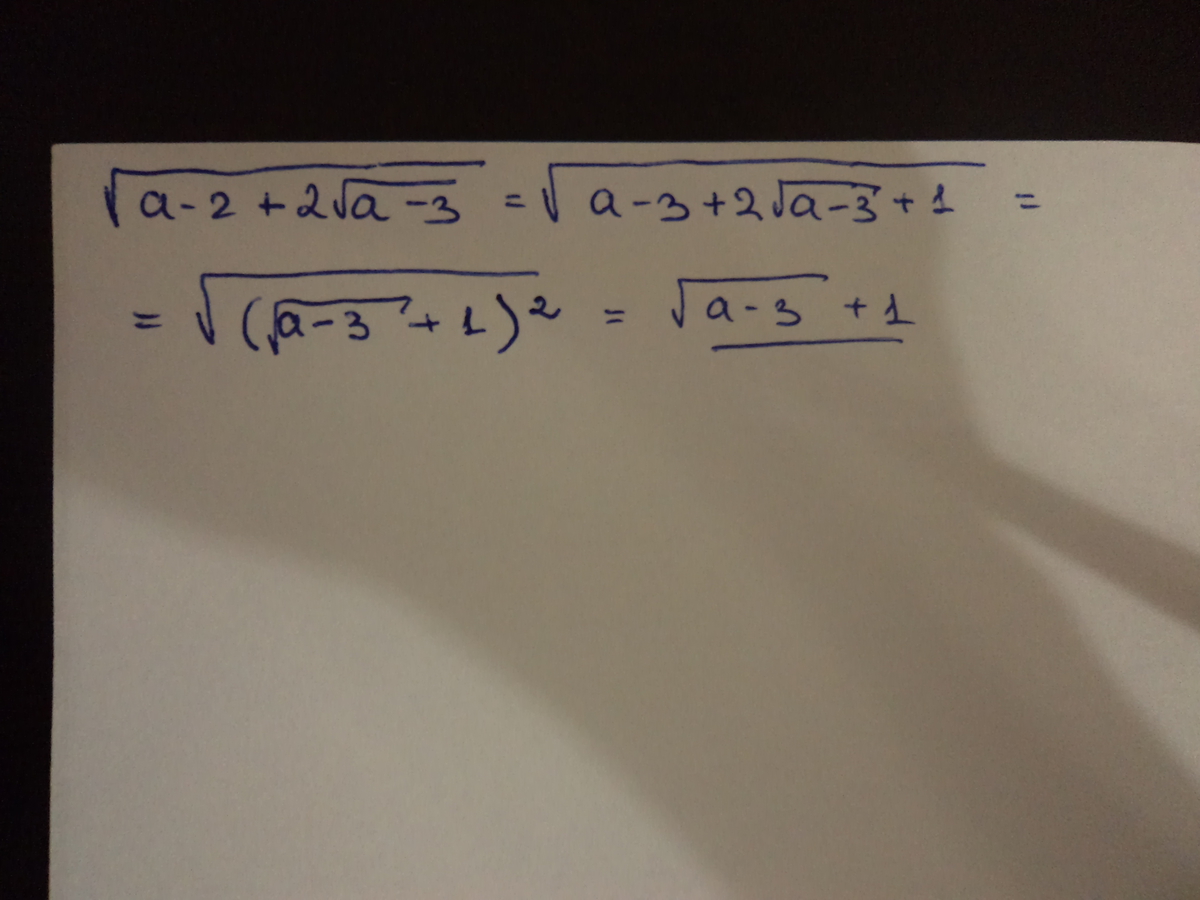 √(a-2+2√(a-3)) = √(a-3+2√(a-3)+1) =
= √((√(a-3)+1)²) = √(a-3)+1